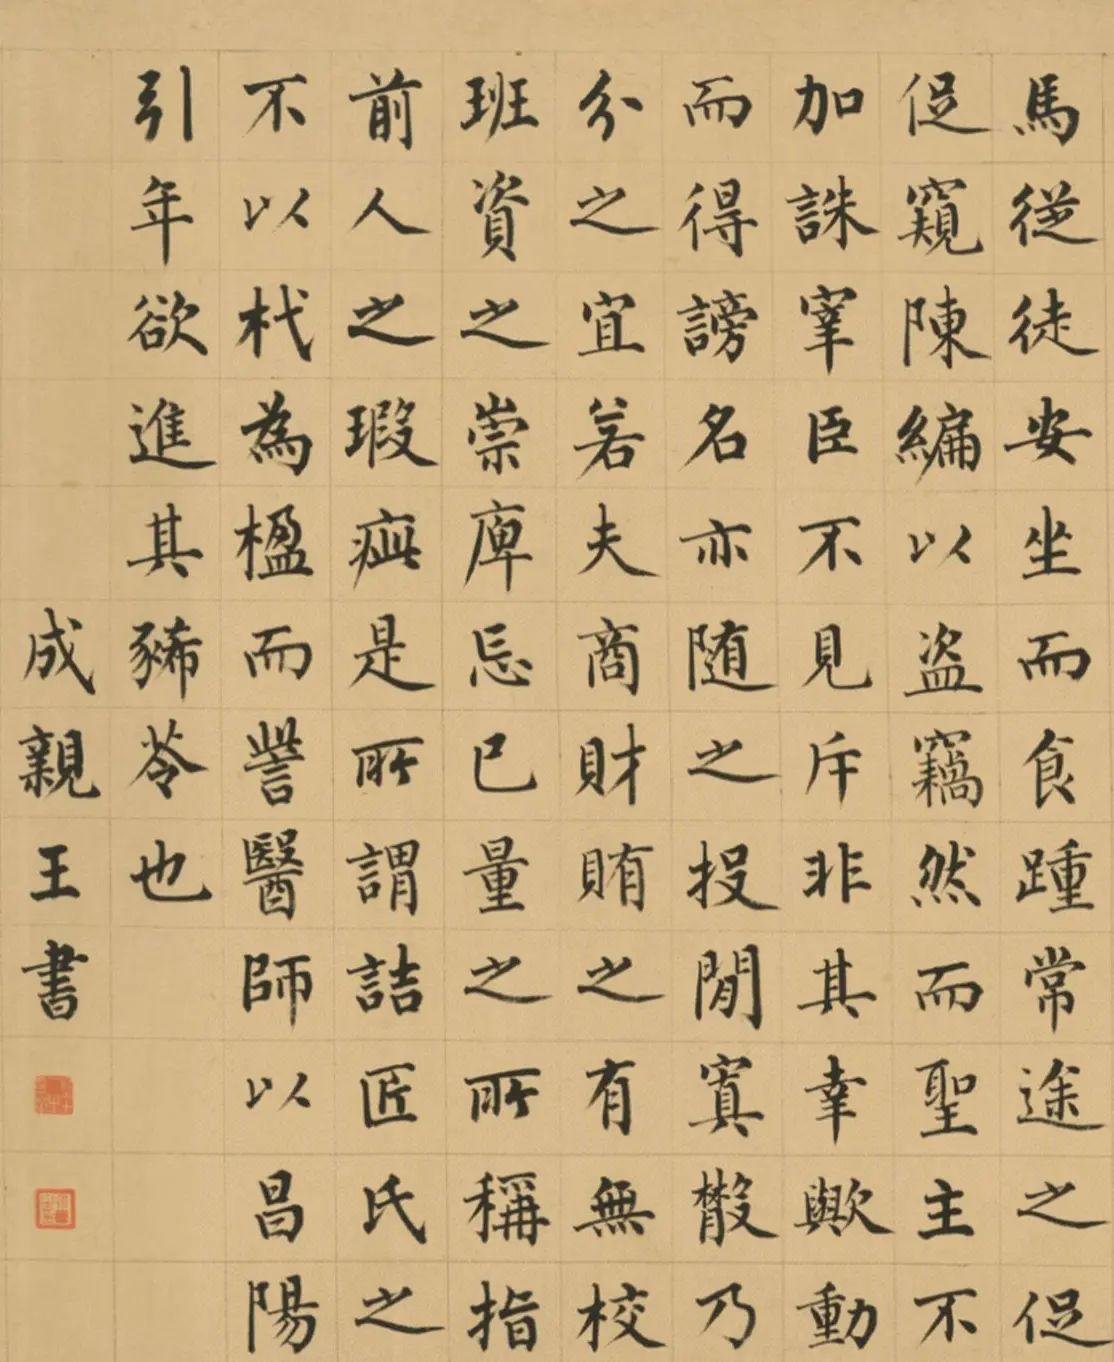 馬從徒安坐而食踵常途之促
促窺陳編以盜竊然而聖主不
加誅宰臣不見斥非其幸歟動
而得謗名亦随之投閒寘散乃
分之宜若夫商財賄之有無校
班資之崇庳忌已量之所稱指
前人之瑕疵是所謂詰匠氏之
不以杙為楹而訾醫師以昌陽
引年欲進其豨苓也
成親王書